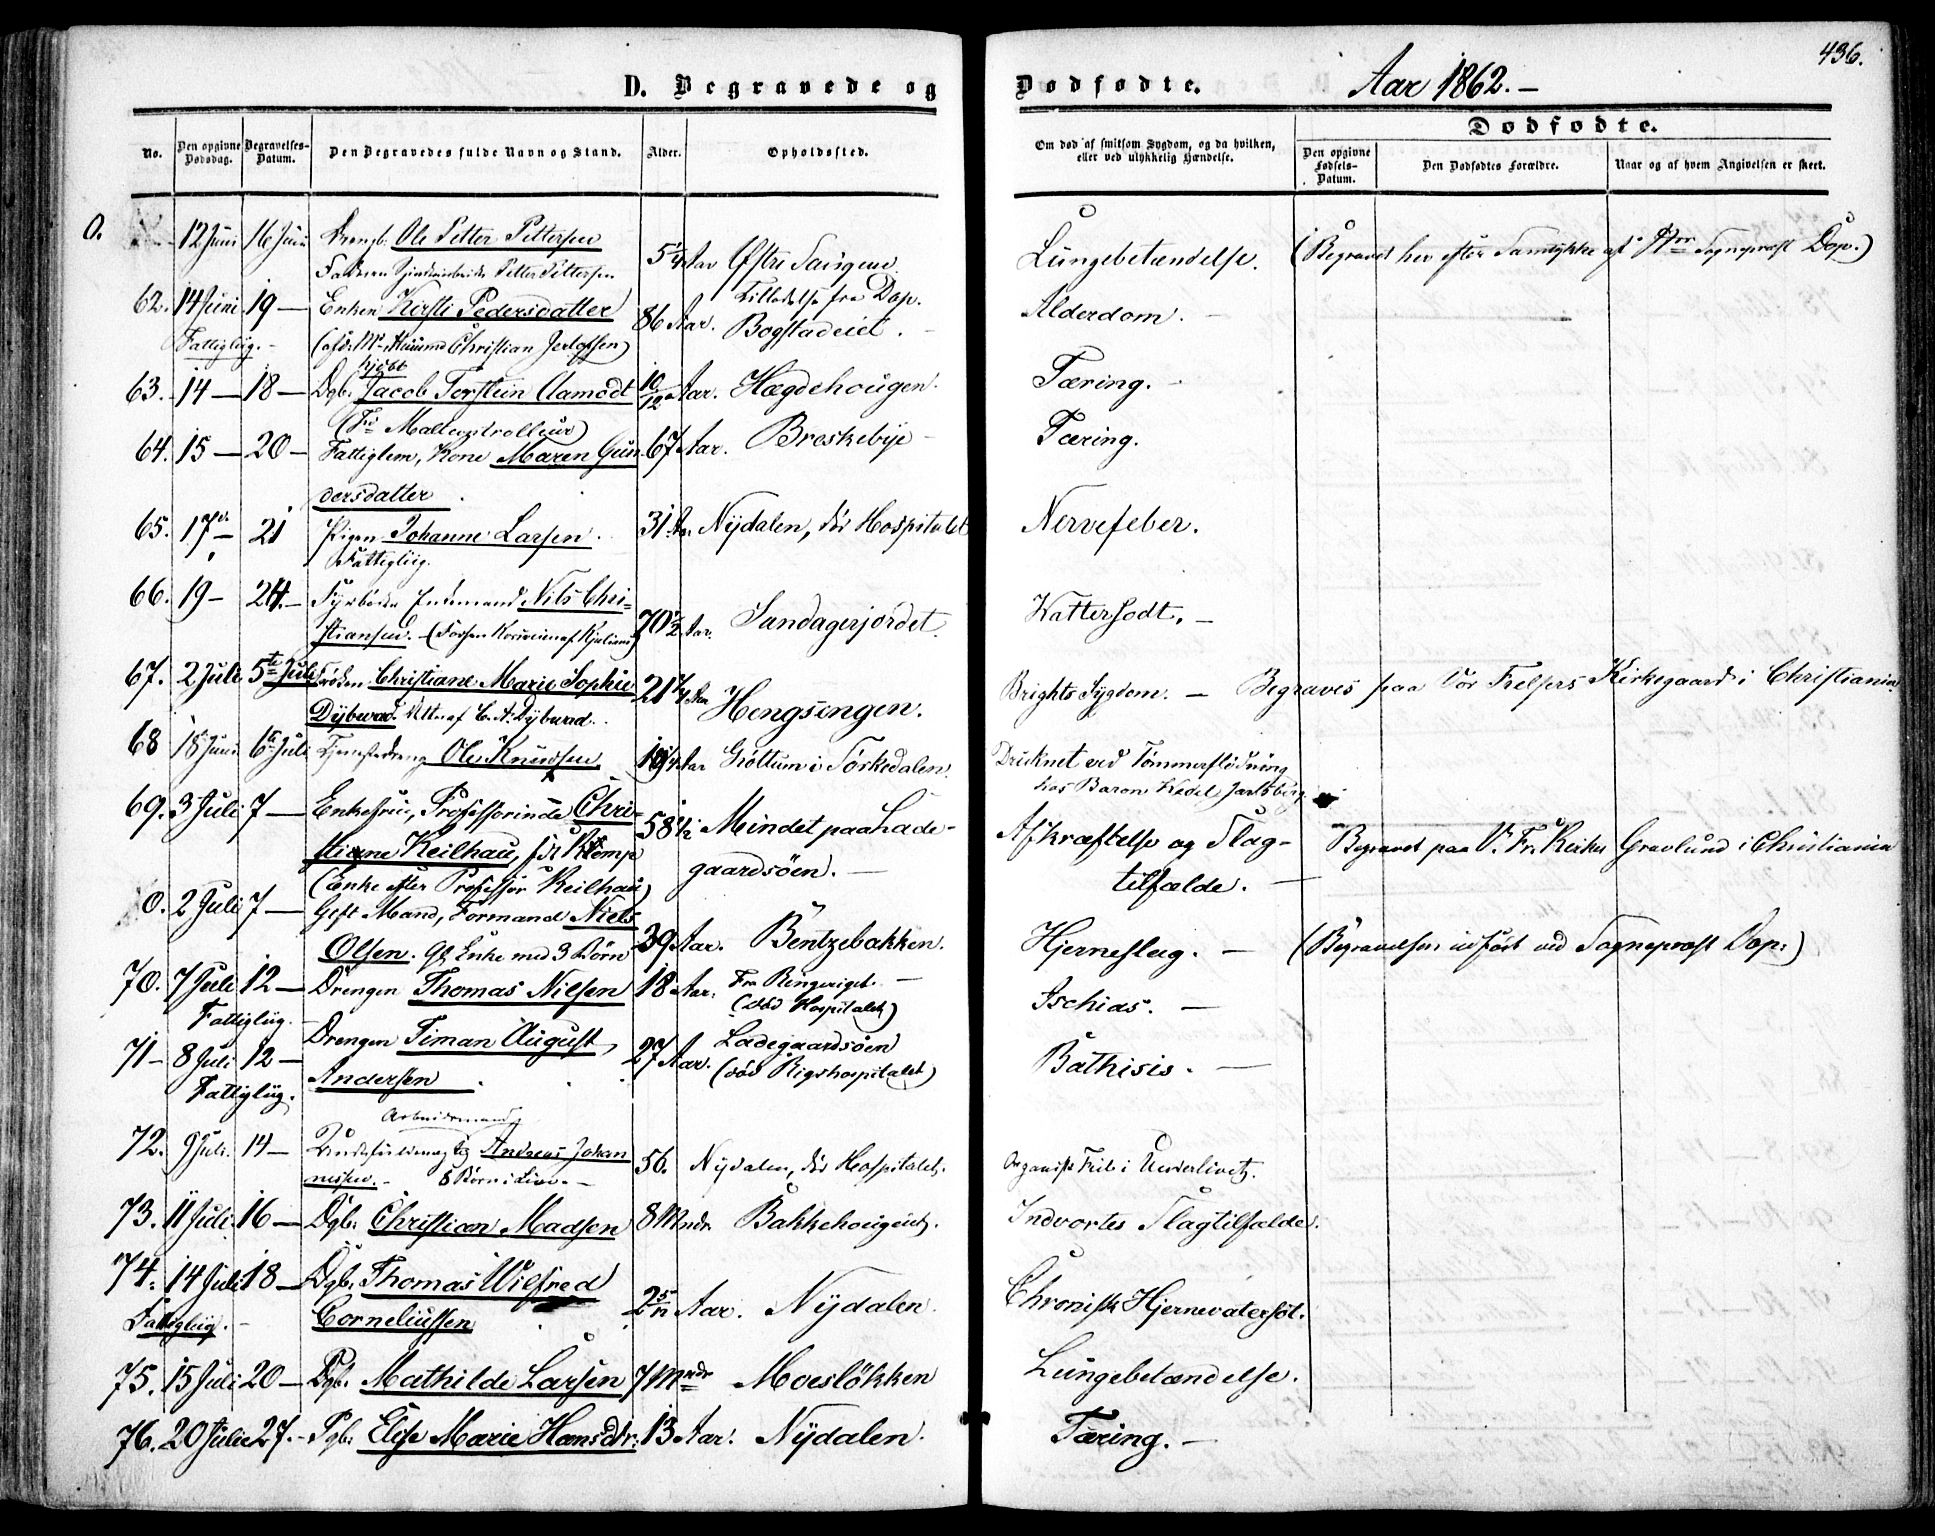 436.
D. Begravede og Dødfødte. Aar 1862.-
No. Den opgivne Dødsdag. Begravelses-Datum. Den Begravedes fulde Navn og Stand. Alder. Opholdssted. Om død af smitsom Sygdom, og da hvilken, eller ved ulykkelig Hændelse. Dødfødte.
Den opgivne Fødsels-Datum. Den Dødfødtes Forældre. Naar og af hvem Angivelsen er skeet.
0. 12 Juni 16 Juni Drengb. Ole Petter Pettersen 5 1/4 Aar Østre Lungebetændelse. (Begravet her efter Samtykke af Hrr Sognepræst Dop.)
Faderen Petter Pettersen Tilladelse fra Dop.
62. 14 Juni 19 — Enken Kirsti Pedersdatter 86 Aar. Bogstadeiet. - Alderdom. -
Fattiglig. - Christian
63. 14 — 18 — Dgb. Jacob Torstein Aamodt 10/12 Aar. Hægdehougen. Tæring. -
64. 15 — 20 — Fattiglem, Kone Maren Gun- 67 Aar. Breskebye - Tæring.
dersdatter
65. 17de — 21 Pigen Johanne Larsen. 31 Aar Nydalen, dør Hospitalet Nervefeber.
Fattiglig.
66. 19 — 24. — Nils Chri- 70 1/2 Aar. Sandagerjordet. Vattersodt. -
stiansen.
67. 2 Juli 5te Juli Frøken Christiane Marie Sophie 21 1/4 Aar Hengsengen. Brights Sygdom. — Begraves paa Vor Frelsers Kirkegaard i Christiania
Dybwad. D. af C. A. Dybwad.
68 15 Juni 6te Juli Tjenestedreng Ole Knudsen Grøttum i Sørkedalen. Druknet ved Tømmerflødning
hos Baron Wedel Jarlsberg.
69. 3 Juli 7 — Enkefrue, Professorinde Chri- 58 1/2 Mindet paa Lade- Afkræftelse og Slag- Begravet paa V. Fr. Kirkes Gravlund i Christiania
stiane Keilhau, født Kemp gaardsøen. — tilfælde. —
(Enke efter Professor Keilhau)
0. 2 Juli 7 — Gift Mand, Formand Niels 39 Aar. Bentzebakken. Hjerneslag. — (Begravelsen udført ved Sognepræst Dop.)
Olsen. Enke med 3 Børn
70. 7 Juli 12 — Drengen Thomas Nilsen 18 Aar. Fra Ringeriget. — Ischias. —
Fattiglig. (død Hospitalet)
71 - 8 Juli 12 — Drengen Timan August 27 Aar. Ladegaardsøen Bathisis. —
Fattiglig. Andersen (død Rigshospitalet)
Arbeidsmand
72. 9 Juli. 14 — Andreas Johan 56. Nydalen, dør Hospitalet. Organisk Feil i Underlivet.
nisen. - 8 Børn i Live. -
73. 11 Juli. 16 — Dgb. Christian Madsen 8 Mndr. Bakkehougen. Indvortes Slagtilfælde.
74. 14 Juli 18 — Dgb. Thomas Wilfred 2 5/12 Aar. Nydalen. Chronisk Hjernevatersot.
Fattiglig. - Corneliussen
75. 15 Juli 20 — Pgb. Mathilde Larsen 7 Mndr Moesløkken Lungebetændelse.
76. 20 Juli 27. - Pgb. Elise Marie Hansdtr. 13 Aar. Nydalen. Tæring. -